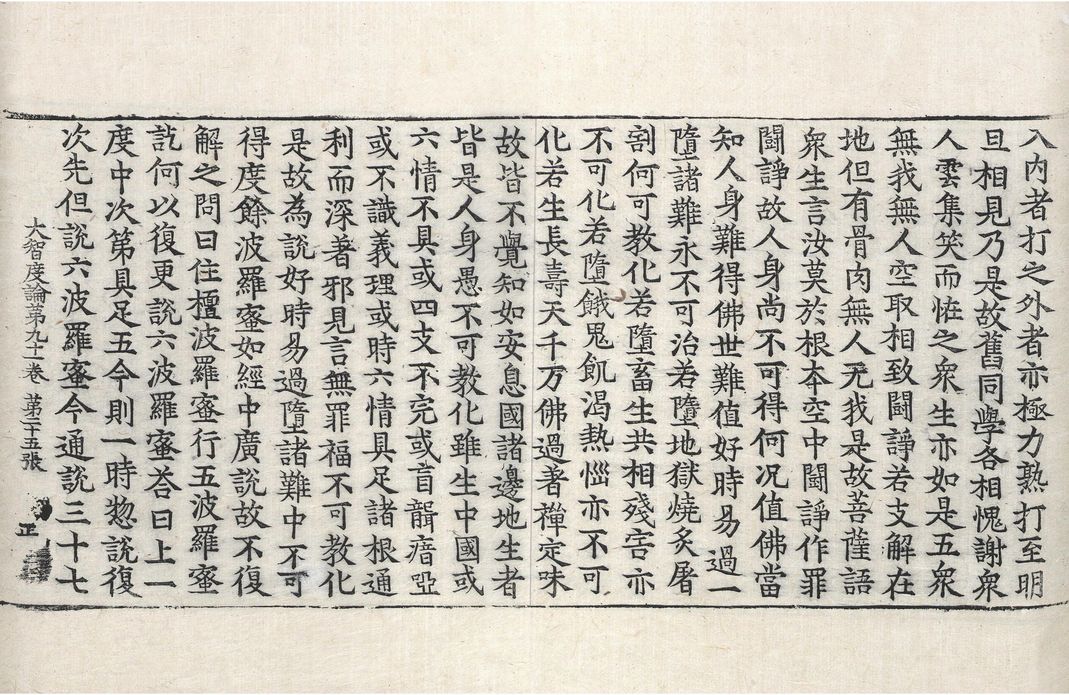 入內者打之外者亦極力熟打至明
旦相見乃是故舊同學各相愧謝衆
人雲集笑而恠之衆生亦如是五衆
無我無人空取相致鬪諍若支解在
地但有骨肉無人无我是故菩薩語
衆生言汝莫於根夲空中鬪諍作罪
鬪諍故人身尚不可得何况值佛當
知人身難得佛世難值好時易過一
墮諸難永不可治若墮地獄燒炙屠
割何可教化若墮畜生共相殘害亦
不可化若墮餓鬼飢渴熱惱亦不可
化若生長壽天千万佛過著禪定味
故皆不覺知如安息國諸邊地生者
皆是人身愚不可教化雖生中國或
六情不具或四支不完或盲聾瘖啞
或不識義理或時六情具足諸根通
利而深著邪見言無罪福不可教化
是故為說好時易過墮諸難中不可
得度餘波羅蜜如經中廣說故不復
解之問曰住檀波羅蜜行五波羅蜜
訖何以復更說六波羅蜜荅曰上一
度中次第具足五今則一時惣說復
次先但說六波羅蜜今通說三十七
大智度論第九十一卷 第二十五張 正